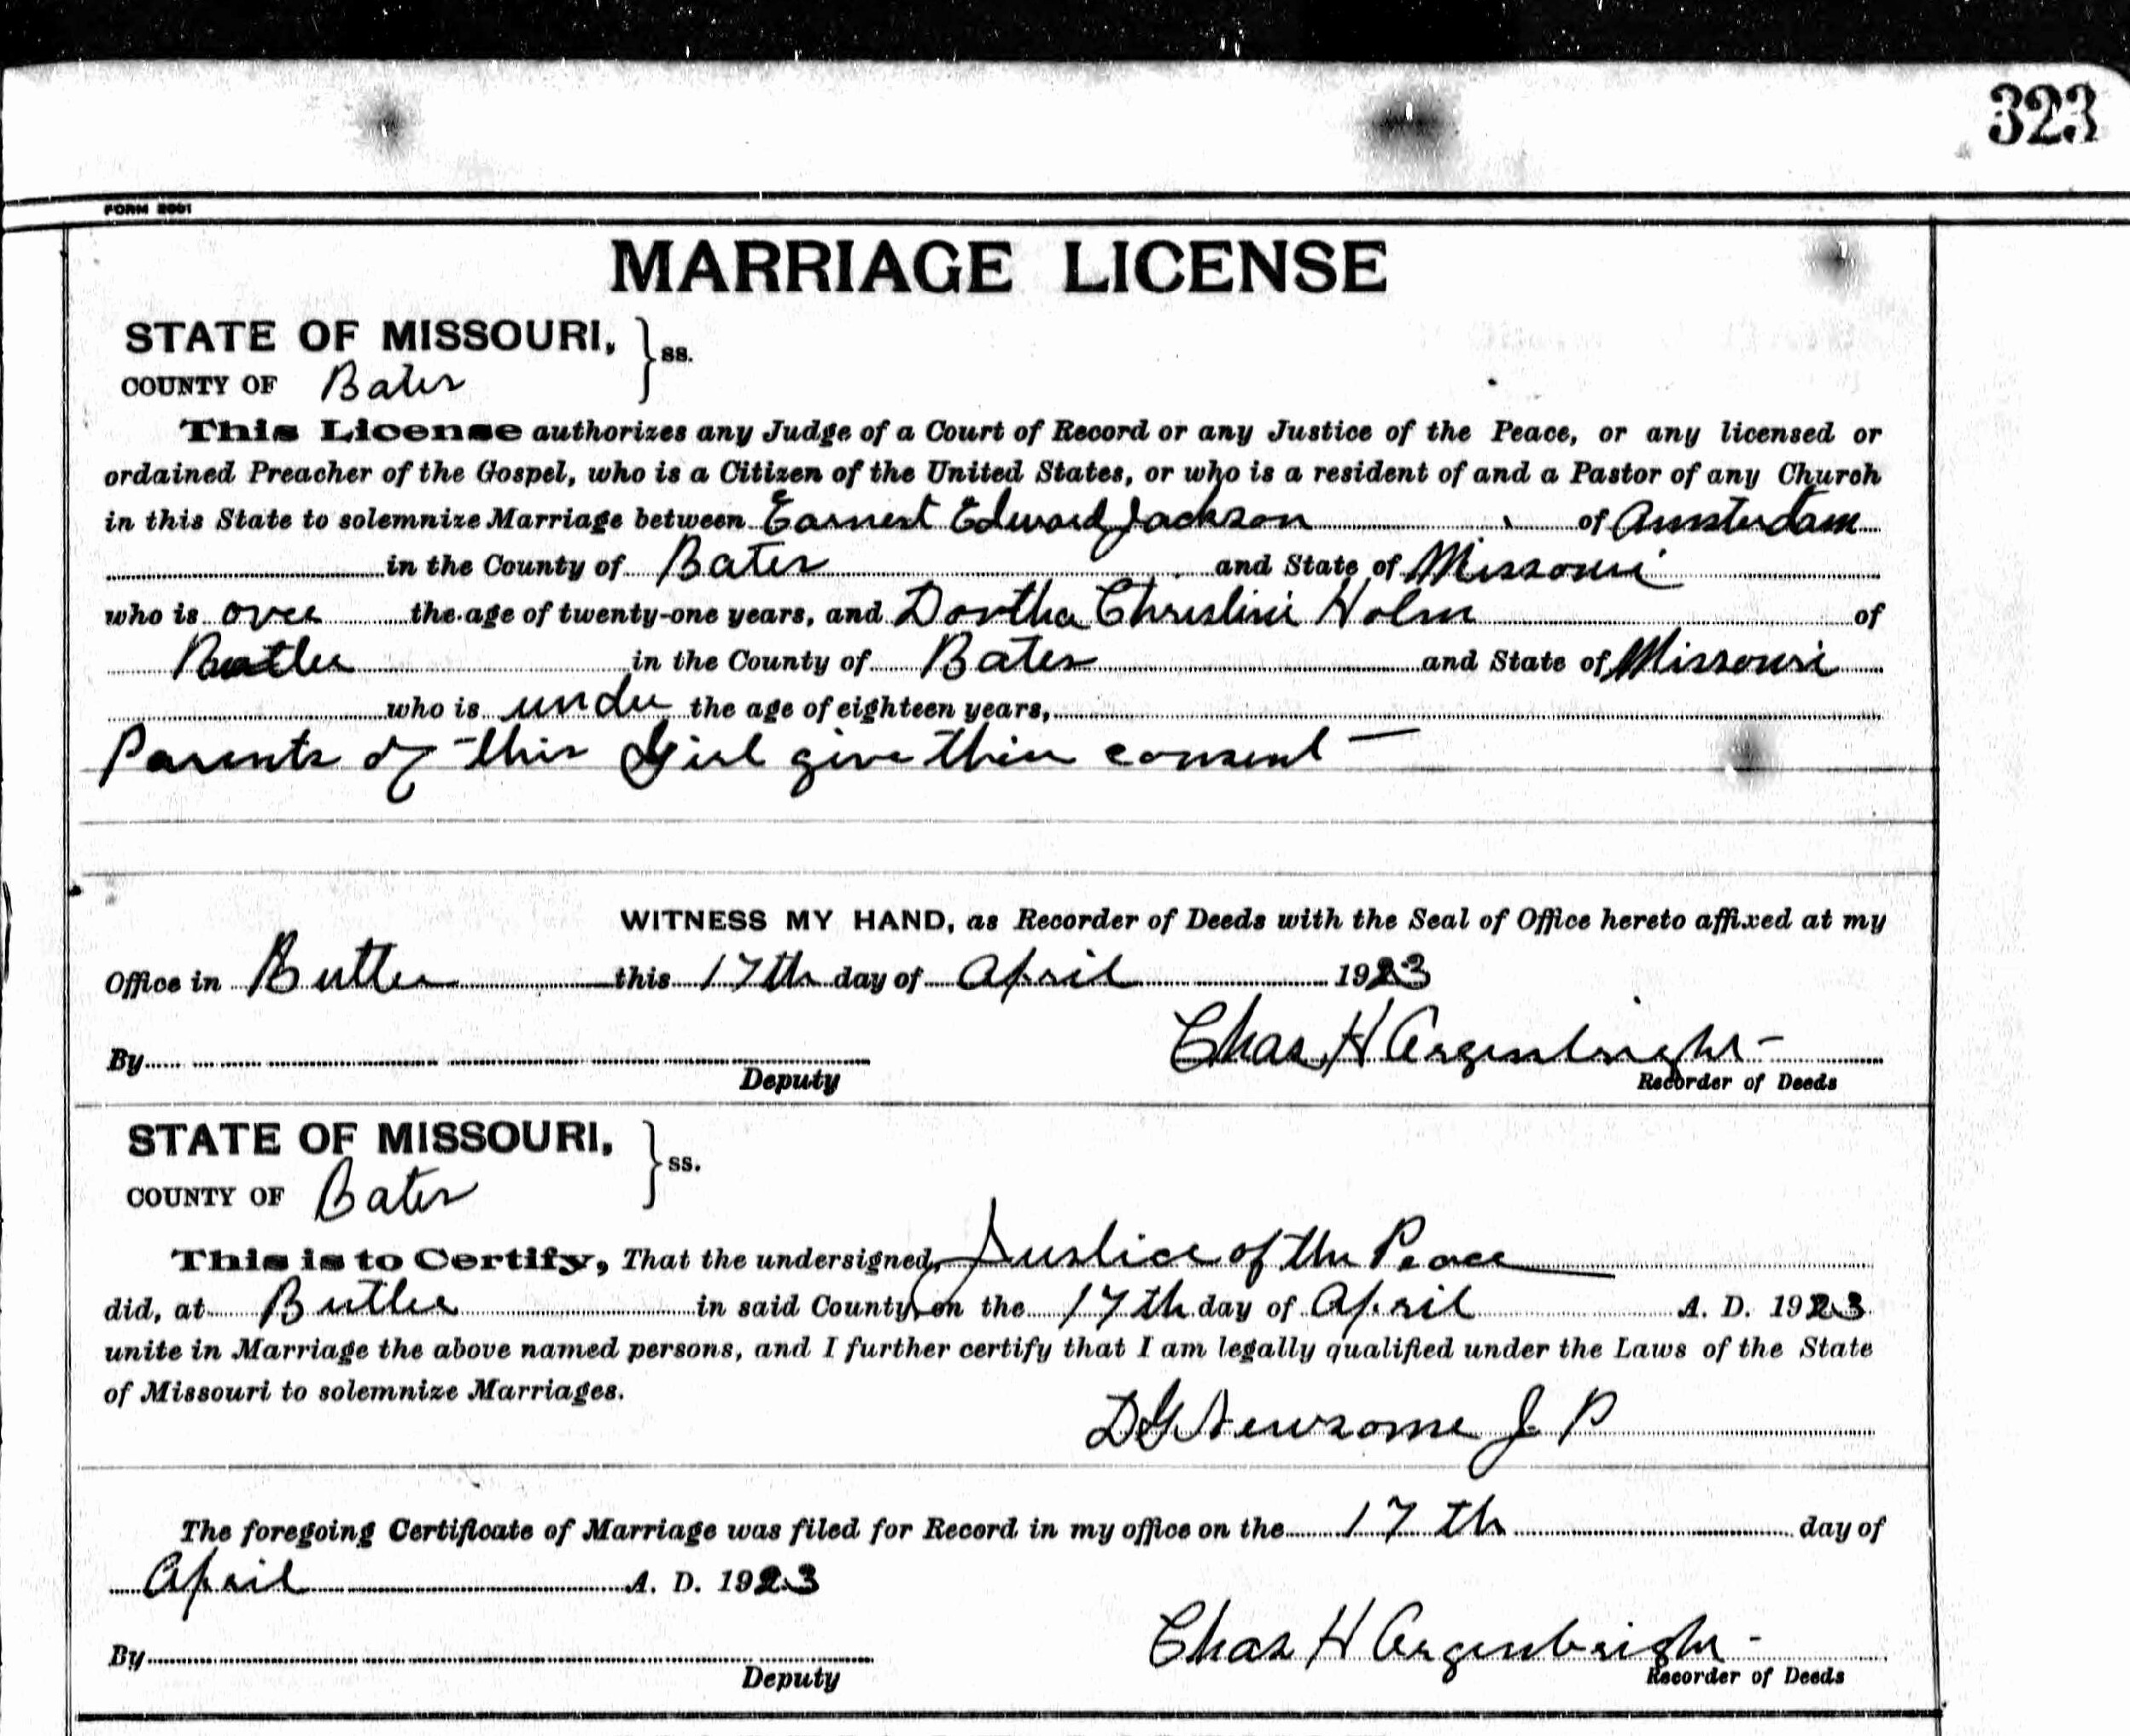 323
FORM 2001
MARRIAGE LICENSE
STATE OF MISSOURI, } ss.
COUNTY OF Bates
This License authorizes any Judge of a Court of Record or any Justice of the Peace, or any licensed or
ordained Preacher of the Gospel, who is a Citizen of the United States, or who is a resident of and a Pastor of any Church
in this State to solemnize Marriage between Earnest Edward Jackson of Amsterdam
in the County of Bates and State of Missouri
who is over the age of twenty-one years, and Dortha Christine Holm of
Butler in the County of Bates and State of Missouri
who is under the age of eighteen years,
Parents of this Girl give their consent —
WITNESS MY HAND, as Recorder of Deeds with the Seal of Office hereto affixed at my
Office in Butler this 17th day of April 1923
By Chas H Argenbright -
Deputy Recorder of Deeds
STATE OF MISSOURI, } ss.
COUNTY OF Bates
This is to Certify, That the undersigned, Justice of the Peace
did, at Butler in said County, on the 17th day of April A. D. 1923
unite in Marriage the above named persons, and I further certify that I am legally qualified under the Laws of the State
of Missouri to solemnize Marriages.
D G Newsome J. P
The foregoing Certificate of Marriage was filed for Record in my office on the 17th day of
April A. D. 1923
By Chas H Argenbright -
Deputy Recorder of Deeds